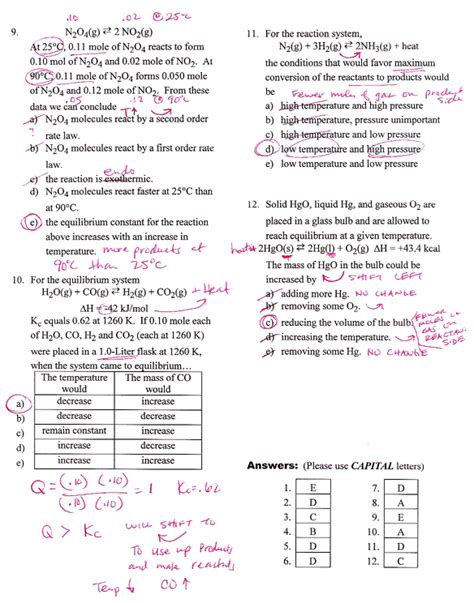 .10 .02 @ 25°C
9. N2O4(g) ⇄ 2 NO2(g)
At 25°C, 0.11 mole of N2O4 reacts to form
0.10 mol of N2O4 and 0.02 mole of NO2. At
90°C, 0.11 mole of N2O4 forms 0.050 mole
of N2O4 and 0.12 mole of NO2. From these
.05 .12 @ 90°C
data we can conclude
a) N2O4 molecules react by a second order
rate law.
b) N2O4 molecules react by a first order rate
law.
endo
c) the reaction is exothermic.
d) N2O4 molecules react faster at 25°C than
at 90°C.
e) the equilibrium constant for the reaction
above increases with an increase in
temperature. more products at
90°C than 25°C
10. For the equilibrium system
H2O(g) + CO(g) ⇄ H2(g) + CO2(g) + Heat
ΔH = -42 kJ/mol
Kc equals 0.62 at 1260 K. If 0.10 mole each
of H2O, CO, H2 and CO2 (each at 1260 K)
were placed in a 1.0-Liter flask at 1260 K,
when the system came to equilibrium…
The temperature would The mass of CO would
a) decrease increase
b) decrease decrease
c) remain constant increase
d) increase decrease
e) increase increase
Q = (.10) (.10) / (.10) (.10) = 1 Kc = .62
Q > Kc will SHIFT to
To use up Products
and make reactants
Temp ↓ CO ↑
11. For the reaction system,
N2(g) + 3H2(g) ⇄ 2NH3(g) + heat
the conditions that would favor maximum
conversion of the reactants to products would
be Fewer moles of gas on product side
a) high temperature and high pressure
b) high temperature, pressure unimportant
c) high temperature and low pressure
d) low temperature and high pressure
e) low temperature and low pressure
12. Solid HgO, liquid Hg, and gaseous O2 are
placed in a glass bulb and are allowed to
reach equilibrium at a given temperature.
heat + 2HgO(s) ⇄ 2Hg(l) + O2(g) ΔH = +43.4 kcal
The mass of HgO in the bulb could be
increased by SHIFT LEFT
a) adding more Hg. NO CHANGE
b) removing some O2.
c) reducing the volume of the bulb.
d) increasing the temperature.
e) removing some Hg. NO CHANGE
FEWER
MOLES OF
GAS ON
REACTANT
SIDE
Answers: (Please use CAPITAL letters)
1. E 7. D
2. D 8. A
3. C 9. E
4. B 10. A
5. D 11. D
6. D 12. C